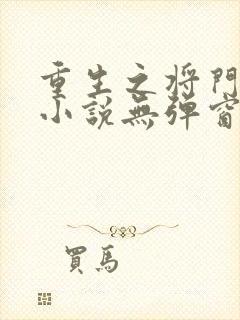 重生之将門
小説無弹窗
買馬